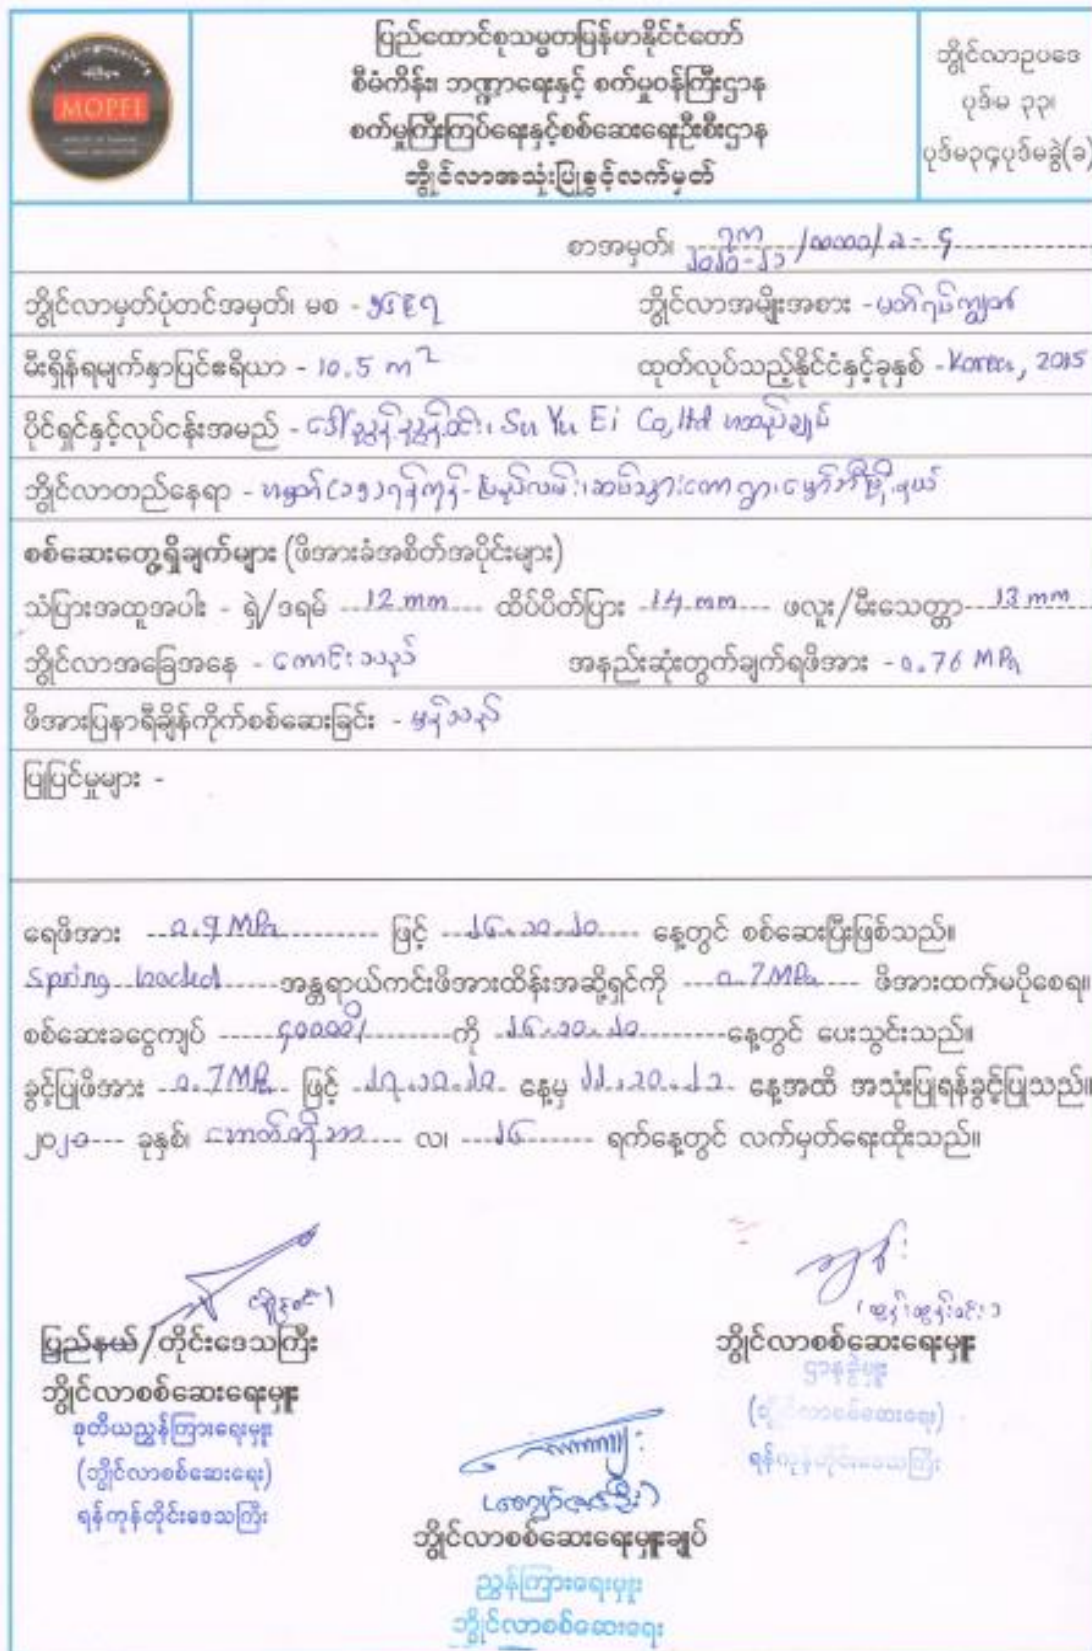 MOPFI
ပြည်ထောင်စုသမ္မတမြန်မာနိုင်ငံတော်
စီမံကိန်း၊ ဘဏ္ဍာရေးနှင့် စက်မှုဝန်ကြီးဌာန
စက်မှုကြီးကြပ်ရေးနှင့်စစ်ဆေးရေးဦးစီးဌာန
ဘွိုင်လာအသုံးပြုခွင့်လက်မှတ်
ဘွိုင်လာဥပဒေ
ပုဒ်မ ၃၃၊
ပုဒ်မ၃၄ပုဒ်မခွဲ(ခ)
စာအမှတ်၊
ဘွိုင်လာမှတ်ပုံတင်အမှတ်၊ မစ -
ဘွိုင်လာအမျိုးအစား -
မီးရှိန်ရမျက်နှာပြင်ဧရိယာ - 10.5 m²
ထုတ်လုပ်သည့်နိုင်ငံနှင့်ခုနှစ် - Korea, 2015
ပိုင်ရှင်နှင့်လုပ်ငန်းအမည် - Su Yu Ei Co,ltd
ဘွိုင်လာတည်နေရာ -
စစ်ဆေးတွေ့ရှိချက်များ (ဖိအားခံအစိတ်အပိုင်းများ)
သံပြားအထူအပါး - ရှဲ/ဒရမ် 12 mm ထိပ်ပိတ်ပြား 14 mm ဖလူး/မီးသေတ္တာ 13 mm
ဘွိုင်လာအခြေအနေ - ကောင်းသည်
အနည်းဆုံးတွက်ချက်ရဖိအား - ၀.76 MPa
ဖိအားပြနာရီချိန်ကိုက်စစ်ဆေးခြင်း - မှန်သည်
ပြုပြင်မှုများ -
ရေဖိအား ၀.9 MPa ဖြင့် ၂၆.၁၀.၂၀ နေ့တွင် စစ်ဆေးပြီးဖြစ်သည်။
Spring loaded အန္တရာယ်ကင်းဖိအားထိန်းအဆို့ရှင်ကို ၀.7 MPa ဖိအားထက်မပိုစေရ။
စစ်ဆေးခငွေကျပ် ၄၀၀၀၀/ ကို ၂၆.၁၀.၂၀ နေ့တွင် ပေးသွင်းသည်။
ခွင့်ပြုဖိအား ၀.7 MPa ဖြင့် ၂၇.၁၀.၂၀ နေ့မှ နေ့အထိ အသုံးပြုရန်ခွင့်ပြုသည်။
၂၀၂၀ ခုနှစ်၊ အောက်တိုဘာ လ၊ ၂၆ ရက်နေ့တွင် လက်မှတ်ရေးထိုးသည်။
ပြည်နယ်/တိုင်းဒေသကြီး
ဘွိုင်လာစစ်ဆေးရေးမှူး
ဒုတိယညွှန်ကြားရေးမှူး
(ဘွိုင်လာစစ်ဆေးရေး)
ရန်ကုန်တိုင်းဒေသကြီး
ဘွိုင်လာစစ်ဆေးရေးမှူး
ဌာနခွဲမှူး
(ဘွိုင်လာစစ်ဆေးရေး)
ရန်ကုန်တိုင်းဒေသကြီး
ဘွိုင်လာစစ်ဆေးရေးမှူးချုပ်
ညွှန်ကြားရေးမှူး
ဘွိုင်လာစစ်ဆေးရေး